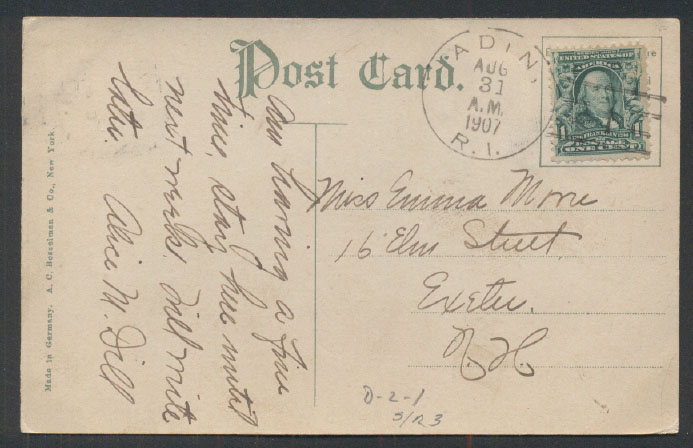 Post Card.
ADIN,
AUG
31
A.M.
1907
R.I.
UNITED STATES OF
AMERICA
1 1
FRANKLIN
POSTAGE
ONE CENT
Am having a fine
time, stay here until
next week. Will write
later. Alice M. Dill
Miss Emma Moore
16 Elm Street
Exeter.
N.H.
D-2-1
S/R3
Made in Germany. A. C. Bosselman & Co., New York